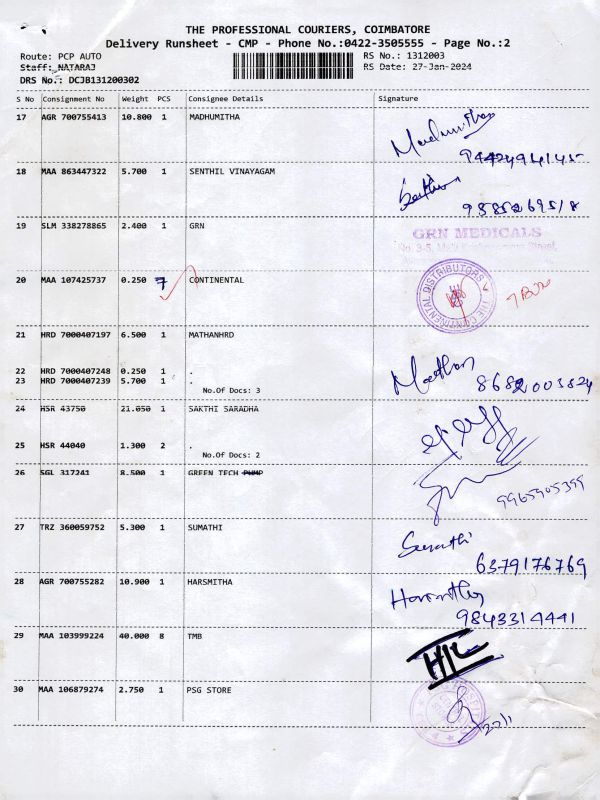 THE PROFESSIONAL COURIERS, COIMBATORE
Delivery Runsheet - CMP - Phone No.:0422-3505555 - Page No.:2
Route: PCP AUTO RS No.: 1312003
Staff: NATARAJ RS Date: 27-Jan-2024
DRS No.: DCJB131200302
S No Consignment No Weight PCS Consignee Details Signature
17 AGR 700755413 10.800 1 MADHUMITHA
Madhumitha
18 MAA 863447322 5.700 1 SENTHIL VINAYAGAM
19 SLM 338278865 2.400 1 GRN
GRN MEDICALS
20 MAA 107425737 0.250 7 CONTINENTAL
THE CONTINENTAL DISTRIBUTORS
7 Box
21 HRD 7000407197 6.500 1 MATHANHRD
22 HRD 7000407248 0.250 1 .
23 HRD 7000407239 5.700 1 .
No.Of Docs: 3
Mathan
24 HSR 43750 21.050 1 SAKTHI SARADHA
25 HSR 44040 1.300 2 .
No.Of Docs: 2
26 SGL 317241 8.500 1 GREEN TECH PUMP
9965905395
27 TRZ 360059752 5.300 1 SUMATHI
Sumathi
6379176769
28 AGR 700755282 10.900 1 HARSMITHA
Harsmitha
9843314441
29 MAA 103999224 40.000 8 TMB
30 MAA 106879274 2.750 1 PSG STORE